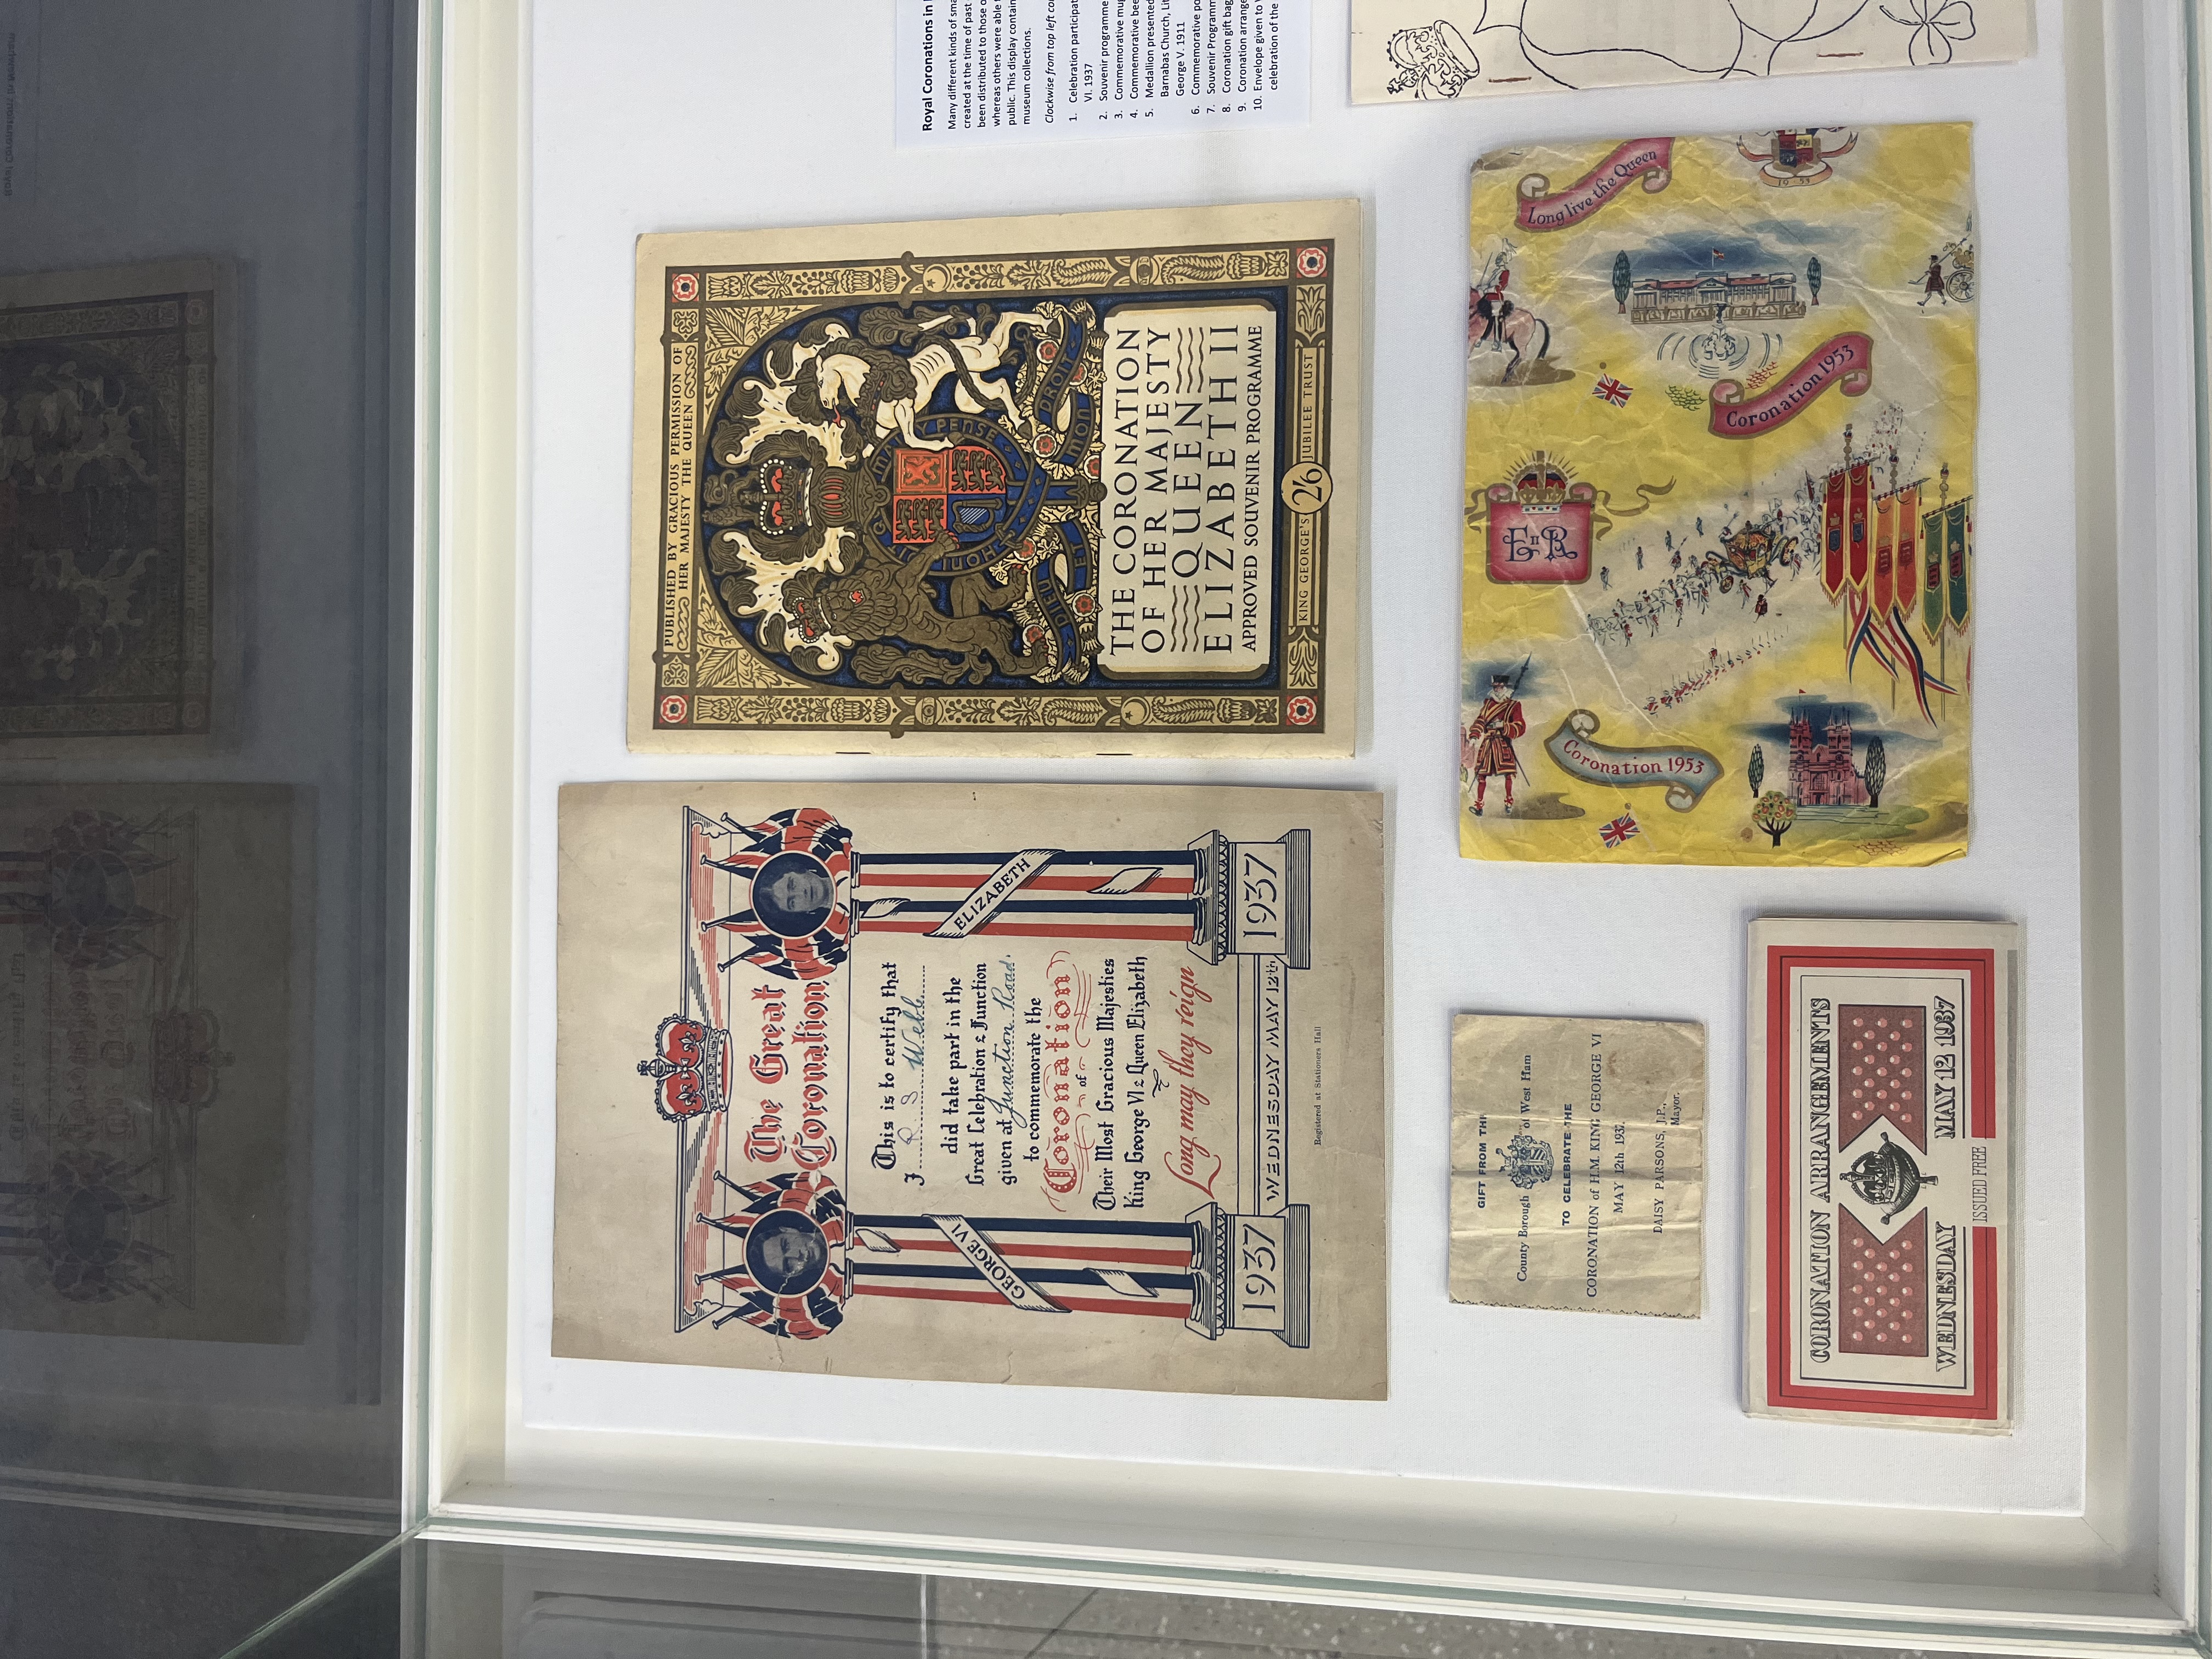 The Great
Coronation
This is to certify that
I R S Webb
did take part in the
Great Celebration & Function
given at Junction Road.
to commemorate the
Coronation
of
Their Most Gracious Majesties
King George VI & Queen Elizabeth
Long may they reign
GEORGE VI
ELIZABETH
1937
WEDNESDAY MAY 12th
1937
Registered at Stationers Hall
PUBLISHED BY GRACIOUS PERMISSION OF
HER MAJESTY THE QUEEN
HONI
MAL Y PENSE
DIEU ET MON DROIT
THE CORONATION
OF HER MAJESTY
QUEEN
ELIZABETH II
APPROVED SOUVENIR PROGRAMME
KING GEORGE'S 2/6 JUBILEE TRUST
Royal Coronations in
Many different kinds of
created at the time of past
been distributed to those
whereas others were able
public. This display
museum collections.
Clockwise from top left
1. Celebration
VI. 1937
2. Souvenir programme
3. Commemorative
4. Commemorative
5. Medallion presented
Barnabas Church,
George V. 1911
6. Commemorative
7. Souvenir
8. Coronation gift
9. Coronation
10. Envelope given to
celebration of the
GIFT FROM THE
County Borough of West Ham
TO CELEBRATE THE
CORONATION of H.M. KING GEORGE VI
MAY 12th 1937.
DAISY PARSONS, J.P.,
Mayor.
CORONATION ARRANGEMENTS
WEDNESDAY MAY 12 1937
ISSUED FREE
Long live the Queen
E II R
Coronation 1953
Coronation 1953
1953